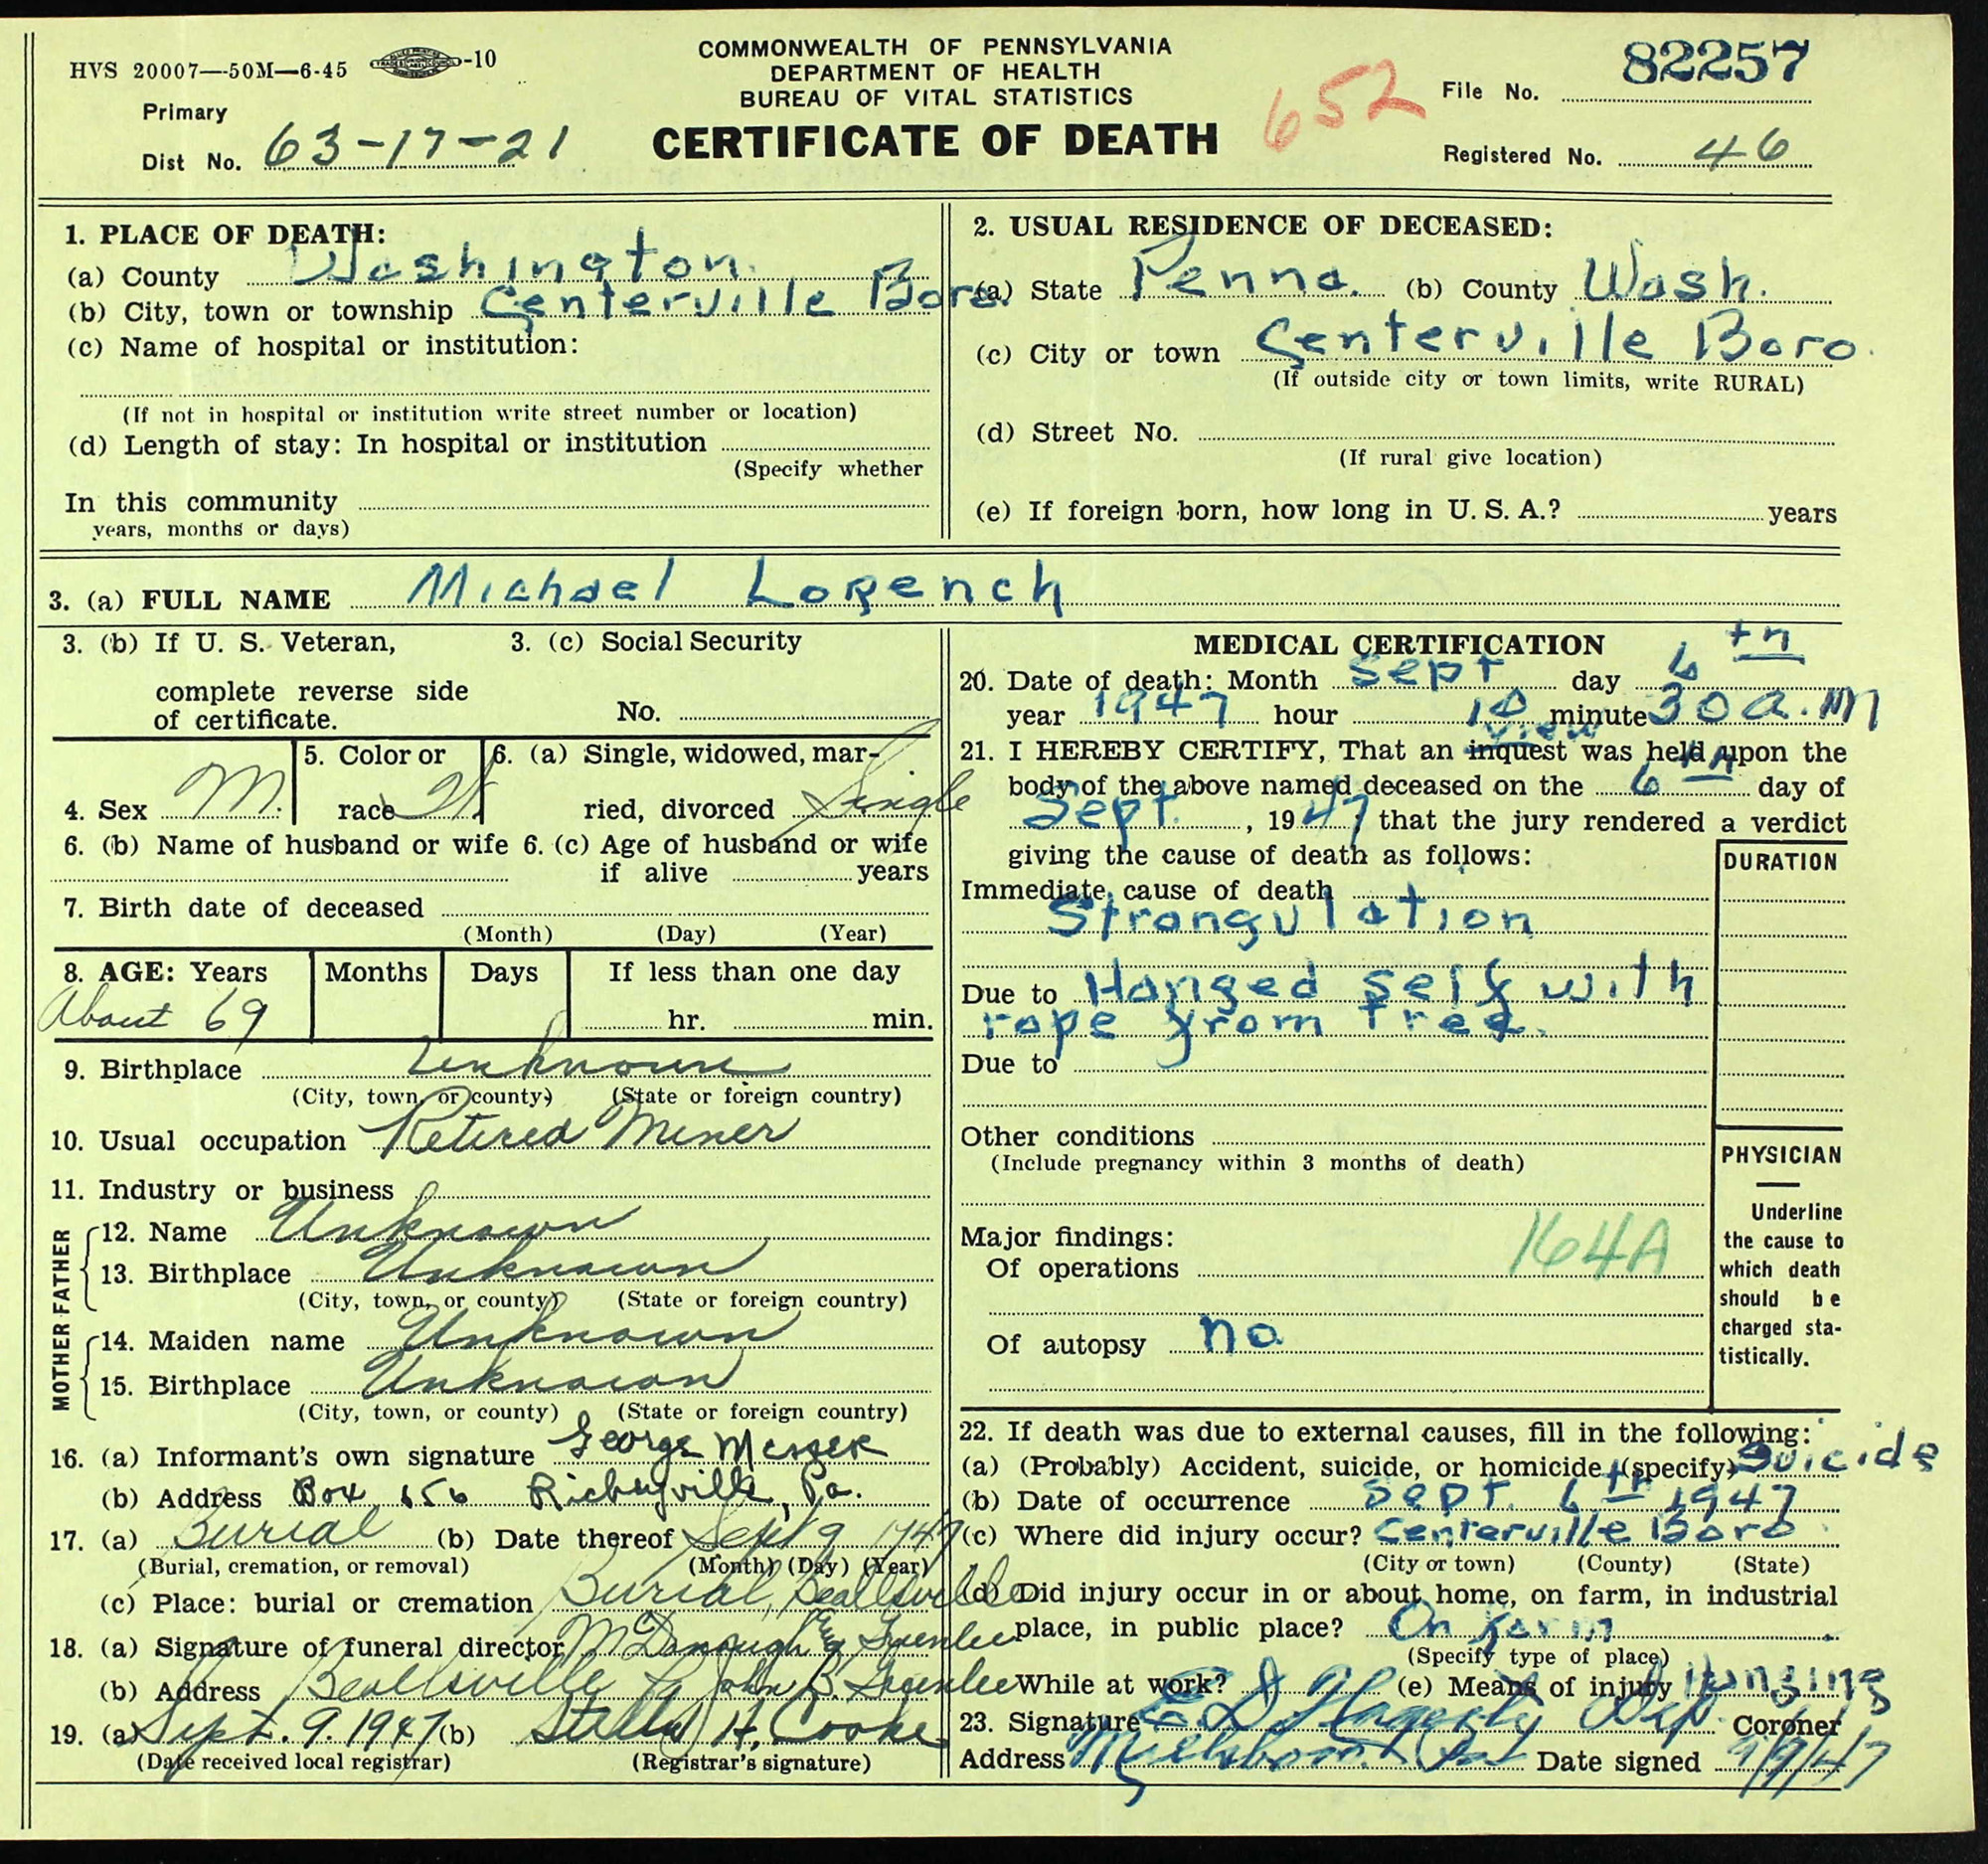 HVS 20007—50M—6-45 -10
COMMONWEALTH OF PENNSYLVANIA
DEPARTMENT OF HEALTH
BUREAU OF VITAL STATISTICS
CERTIFICATE OF DEATH
652
File No. 82257
Registered No. 46
Primary
Dist No. 63-17-21
1. PLACE OF DEATH:
(a) County Washington
(b) City, town or township Centerville Boro.
(c) Name of hospital or institution:
(If not in hospital or institution write street number or location)
(d) Length of stay: In hospital or institution
(Specify whether
In this community
years, months or days)
2. USUAL RESIDENCE OF DECEASED:
(a) State Penna. (b) County Wash.
(c) City or town Centerville Boro.
(If outside city or town limits, write RURAL)
(d) Street No.
(If rural give location)
(e) If foreign born, how long in U. S. A.? years
3. (a) FULL NAME Michael Lorench
3. (b) If U. S. Veteran,
complete reverse side
of certificate.
3. (c) Social Security
No.
4. Sex M.
5. Color or
race W
6. (a) Single, widowed, mar-
ried, divorced Single
6. (b) Name of husband or wife
6. (c) Age of husband or wife
if alive years
7. Birth date of deceased
(Month) (Day) (Year)
8. AGE: Years Months Days If less than one day
About 69 hr. min.
9. Birthplace Unknown
(City, town, or county) (State or foreign country)
10. Usual occupation Retired Miner
11. Industry or business
FATHER
12. Name Unknown
13. Birthplace Unknown
(City, town, or county) (State or foreign country)
MOTHER
14. Maiden name Unknown
15. Birthplace Unknown
(City, town, or county) (State or foreign country)
16. (a) Informant's own signature George Messer
(b) Address Box 156 Richeyville, Pa.
17. (a) Burial (b) Date thereof Sept 9 1947
(Burial, cremation, or removal) (Month) (Day) (Year)
(c) Place: burial or cremation Burial, Beallsville
18. (a) Signature of funeral director McDonough & Greenlee
(b) Address Beallsville John B. Greenlee
19. (a) Sept. 9. 1947 (b) Stella H. Cooke
(Date received local registrar) (Registrar's signature)
MEDICAL CERTIFICATION
20. Date of death: Month Sept day 6th
year 1947 hour 10 minute 30 a.m
view
21. I HEREBY CERTIFY, That an inquest was held upon the
body of the above named deceased on the 6th day of
Sept. , 1947 that the jury rendered a verdict
giving the cause of death as follows:
DURATION
Immediate cause of death
Strangulation
Due to Hanged self with
rope from tree.
Due to
Other conditions
(Include pregnancy within 3 months of death)
Major findings:
Of operations
164A
Of autopsy no
PHYSICIAN
Underline
the cause to
which death
should be
charged sta-
tistically.
22. If death was due to external causes, fill in the following:
(a) (Probably) Accident, suicide, or homicide (specify) Suicide
(b) Date of occurrence Sept. 6th 1947
(c) Where did injury occur? Centerville Boro.
(City or town) (County) (State)
(d) Did injury occur in or about home, on farm, in industrial
place, in public place? On farm
(Specify type of place)
While at work? (e) Means of injury Hanging
23. Signature E D Hagerty Dep. Coroner
Address Date signed 9/9/47